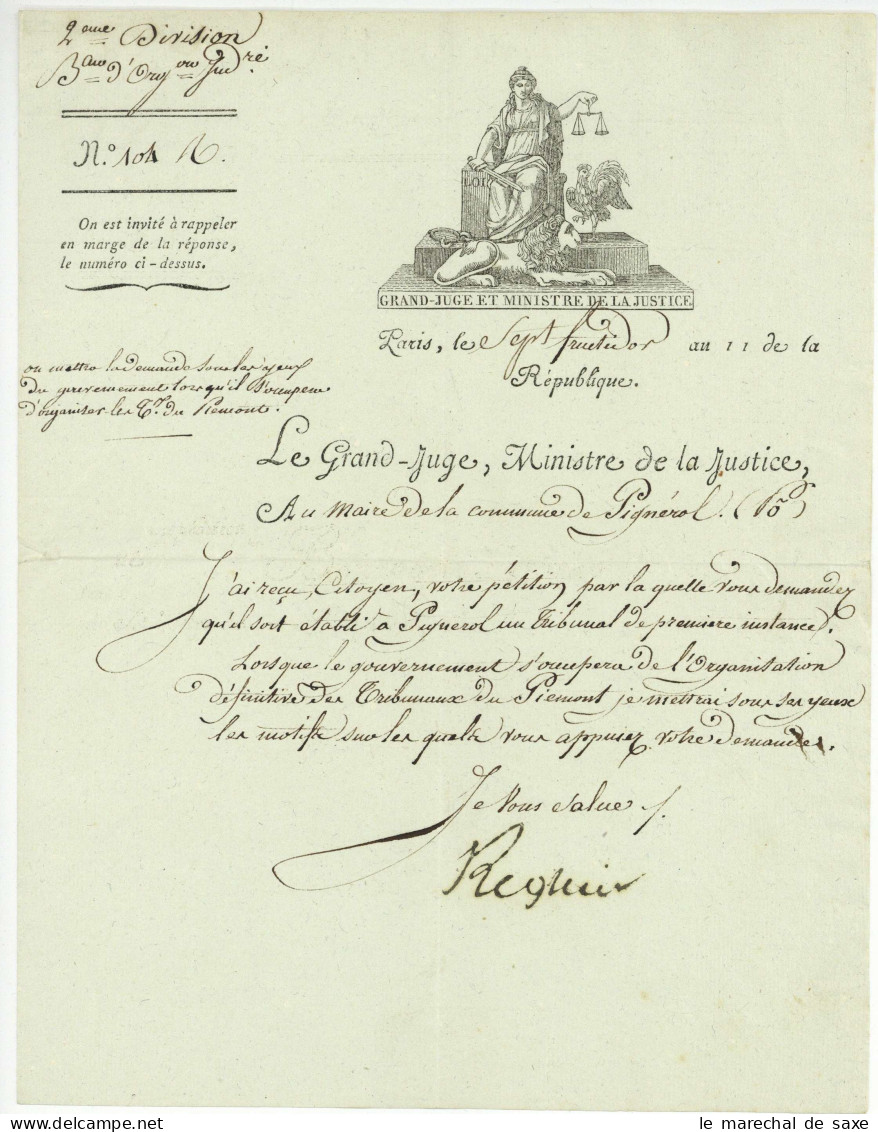 2eme Division
Bau d'Orgon Judre
N.° 104 R.
On est invité à rappeler
en marge de la réponse,
le numéro ci-dessus.
LOI
GRAND-JUGE ET MINISTRE DE LA JUSTICE
Paris, le Sept fructidor an 11 de la
République.
on mettra la demande sous les yeux
du gouvernement lorsqu'il s'occupera
d'organiser les Tx. du Piemont.
Le Grand-Juge, Ministre de la Justice,
Au Maire de la commune de Pignérol. (Pô)
J'ai reçu, Citoyen, votre pétition par la quelle vous demandez
qu'il soit établi à Pignerol un Tribunal de premiere instance.
Lorsque le gouvernement s'occupera de l'Organisation
définitive des Tribunaux du Piemont je mettrai sous ses yeux
les motifs sur les quels vous appuiez votre demande.
Je Vous salue ./.
Regnier
le marechal de saxe